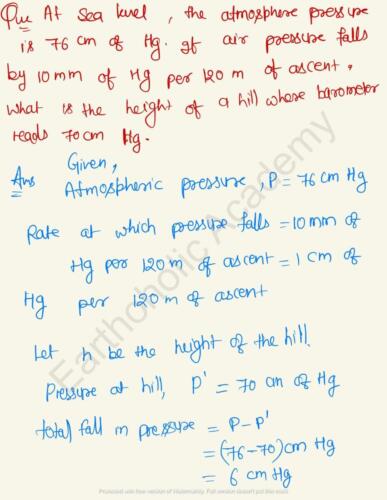 Que At Sea level, the atmosphere pressure
is 76 cm of Hg. If air pressure falls
by 10 mm of Hg per 120 m of ascent.
What is the height of a hill where barometer
reads 70 cm Hg.
Given,
Ans Atmospheric pressure, P = 76 cm Hg
Rate at which pressure falls = 10 mm of
Hg per 120 m of ascent = 1 cm of
Hg per 120 m of ascent
Let h be the height of the hill.
Pressure at hill, P' = 70 cm of Hg
total fall in pressure = P - P'
= (76-70) cm Hg
= 6 cm Hg
Earthoholic Academy
Protected with free version of Watermarkly. Full version doesn't put this mark.